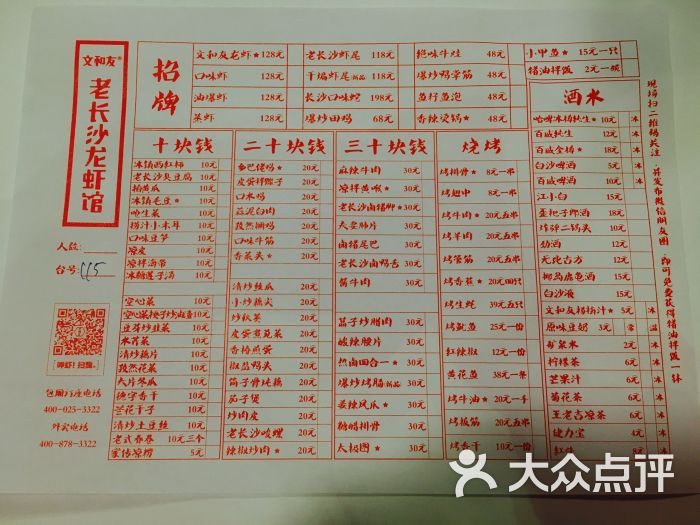 文和友®
老长沙龙虾馆
人数:
台号: 115
呷虾!扫我。
包厢订座电话
400-025-3322
外卖电话
400-878-3322
招牌
文和友龙虾★ 128元
口味虾 128元
油爆虾 128元
蒸虾 128元
老长沙虾尾 118元
干煸虾尾 新品 118元
长沙口味蛇 198元
爆炒田鸡 68元
绝味牛蛙 48元
爆炒鸭掌筋 48元
鱼籽鱼泡 48元
香辣烫锅★ 48元
小甲鱼★ 15元一只
猪油拌饭 2元一碗
十块钱
冰镇西红柿 10元
老长沙臭豆腐 10元
拍黄瓜 10元
冰镇毛豆★ 10元
呛生菜 10元
捞汁小木耳 10元
口味豆笋 10元
凉皮 10元
凉拌海带 10元
冰糖莲子汤 10元
空心菜 10元
空心菜梗子炒油渣 10元
豆豉炒韭菜 10元
水芹菜 10元
清炒藕片 10元
孜然花菜 10元
大片冬瓜 10元
德字香干 10元
芒花干子 10元
清炒土豆丝 10元
老式春卷 10元三个
家传凉捞 5元
二十块钱
乡巴佬鸡★ 20元
皮蛋拌辣子 20元
口水鸡 20元
蒜泥白肉 20元
孜然捆鸡 20元
口味牛筋 20元
香菜头★ 20元
清炒丝瓜 20元
小炒藕尖 20元
炒秋葵 20元
皮蛋煮苋菜 20元
香椿煎蛋 20元
椒盐鸭头 20元
筒子骨炖藕 20元
茄子煲 20元
炒肉皮 20元
老长沙唆螺 20元
辣椒炒肉★ 20元
三十块钱
麻辣牛肉 30元
凉拌黄喉★ 30元
老长沙卤猪脚★ 30元
夫妻肺片 30元
卤猪尾巴 30元
老长沙卤鸭舌 30元
酱牛肉 30元
茄子炒腊肉 30元
酸辣腰片 30元
热卤四合一★ 30元
爆炒烤肠 新品 30元
姜辣凤爪★ 30元
糖醋排骨 30元
太极图★ 30元
烧烤
烤排骨★ 8元一串
烤翅中 8元一串
烤牛肉★ 20元五串
烤羊肉 20元五串
烤管筋 20元五串
烤香蕉★ 20元四只
烤生蚝 39元五只
烤鱿鱼 25元一份
红辣椒 12元一份
黄花鱼 38元一条
烤牛油★ 20元十串
烤板筋 20元五串
烤香干 10元一份
酒水
哈啤冰杨扎生★ 10元 冰
百威扎生 12元 冰
百威金樽★ 18元 冰
白沙啤酒 5元 冰
百威啤酒 10元 冰
江小白 15元
歪把子郎酒 18元
炸弹二锅头 10元
劲酒 12元
无比古方 12元
椰岛鹿龟酒 15元
白沙液 15元
文和友杨梅汁★ 5元 冰
原味豆奶 3元 常 温
矿泉水 2元 冰
柠檬茶 6元 冰
芒果汁 6元 冰
菊花茶 6元 冰
王老吉凉茶 6元 冰
健力宝 4元 冰
红牛 8元 冰
现场扫二维码关注,并发布微信朋友圈,即可免费获得猪油拌饭一钵
大众点评